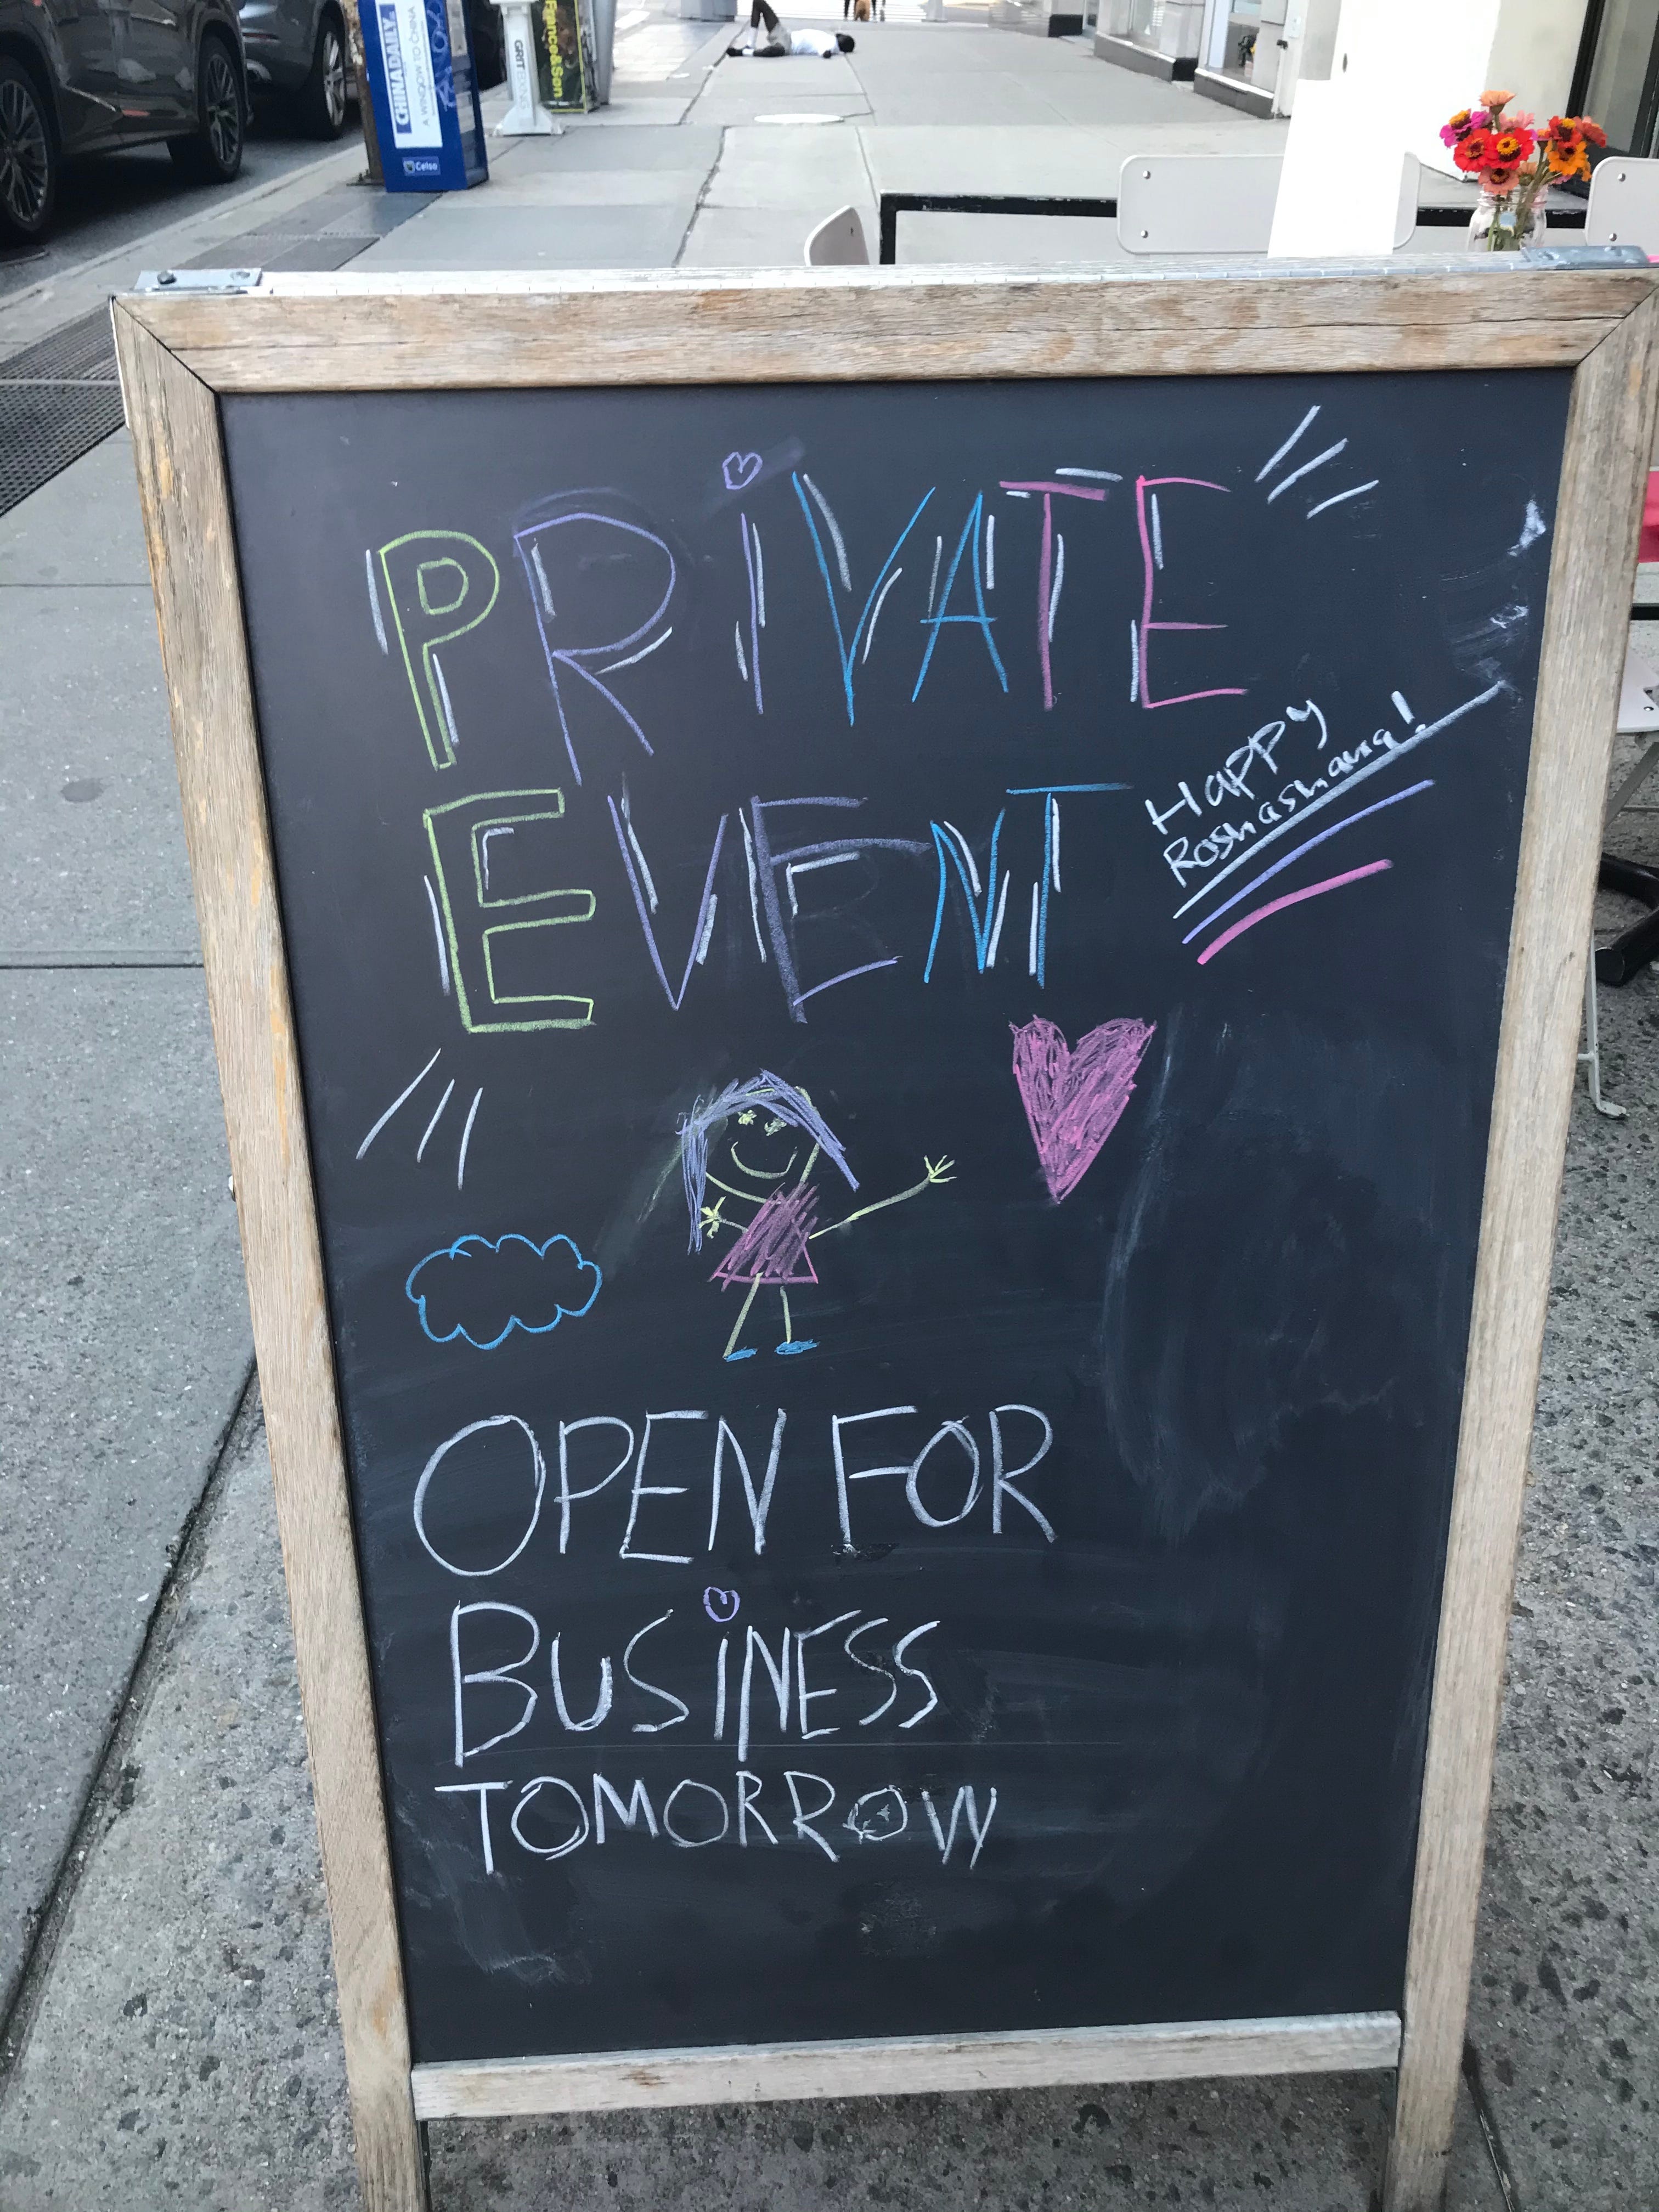 CHINADAILY
A WINDOW TO CHINA
Celso
GRITBXNG
France&Son
PRiVATE
EVENT
HAPPY
Roshashana!
OPEN FOR
BUSiNESS
TOMORROW